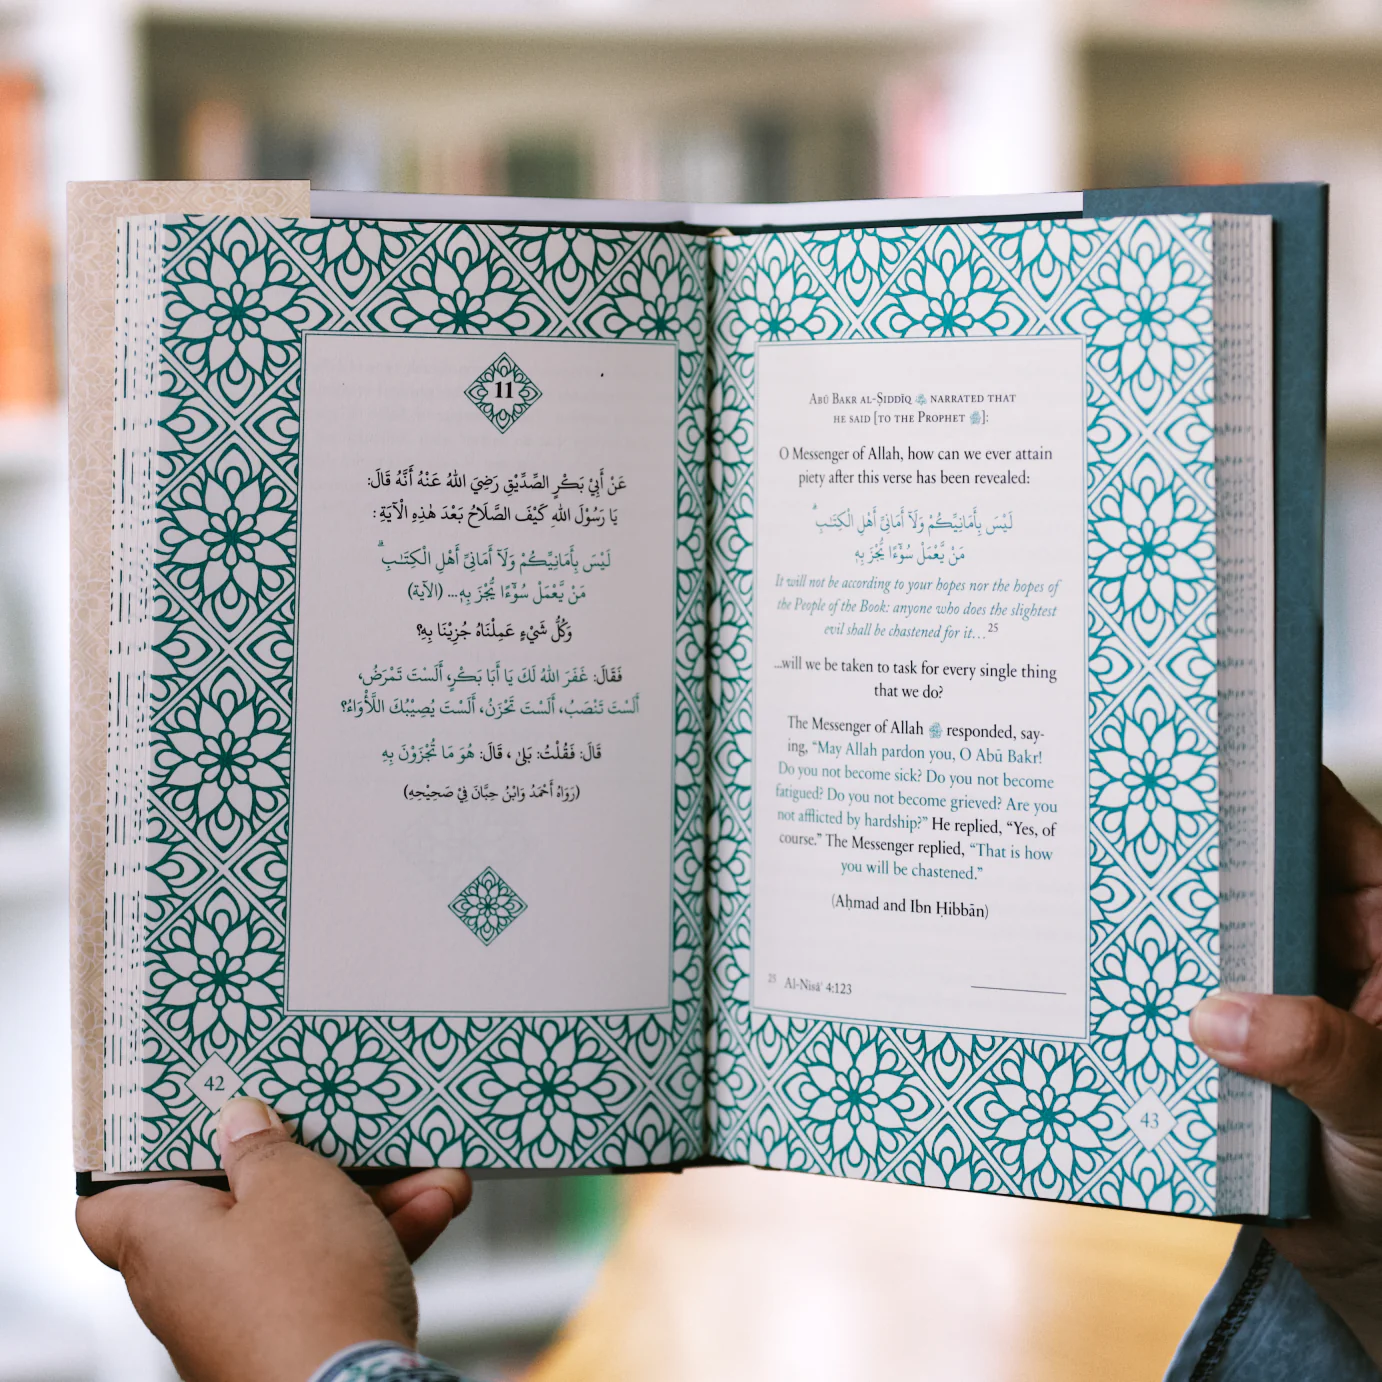 11
عَنْ أَبِيْ بَكْرٍ الصِّدِّيْقِ رَضِيَ اللّٰهُ عَنْهُ أَنَّهُ قَالَ:
يَا رَسُوْلَ اللّٰهِ كَيْفَ الصَّلَاحُ بَعْدَ هٰذِهِ الْآيَةِ:
لَيْسَ بِأَمَانِيِّكُمْ وَلَآ أَمَانِيِّ أَهْلِ الْكِتٰبِ ۗ
مَنْ يَّعْمَلْ سُوْٓءًا يُّجْزَ بِهٖ... (الآية)
وَكُلُّ شَيْءٍ عَمِلْنَاهُ جُزِيْنَا بِهِ؟
فَقَالَ: غَفَرَ اللّٰهُ لَكَ يَا أَبَا بَكْرٍ، أَلَسْتَ تَمْرَضُ،
أَلَسْتَ تَنْصَبُ، أَلَسْتَ تَحْزَنُ، أَلَسْتَ يُصِيْبُكَ اللَّأْوَاءُ؟
قَالَ: فَقُلْتُ: بَلىٰ، قَالَ: هُوَ مَا تُجْزَوْنَ بِهِ
(رَوَاهُ أَحْمَدُ وَابْنُ حِبَّانَ فِيْ صَحِيْحِهِ)
42
Abū Bakr al-Ṣiddīq narrated that
he said [to the Prophet ﷺ]:
O Messenger of Allah, how can we ever attain
piety after this verse has been revealed:
لَيْسَ بِأَمَانِيِّكُمْ وَلَآ أَمَانِيِّ أَهْلِ الْكِتٰبِ ۗ
مَنْ يَّعْمَلْ سُوْٓءًا يُّجْزَ بِهٖ
It will not be according to your hopes nor the hopes of
the People of the Book: anyone who does the slightest
evil shall be chastened for it…25
...will we be taken to task for every single thing
that we do?
The Messenger of Allah ﷺ responded, say-
ing, “May Allah pardon you, O Abū Bakr!
Do you not become sick? Do you not become
fatigued? Do you not become grieved? Are you
not afflicted by hardship?” He replied, “Yes, of
course.” The Messenger replied, “That is how
you will be chastened.”
(Aḥmad and Ibn Ḥibbān)
25 Al-Nisā’ 4:123
43